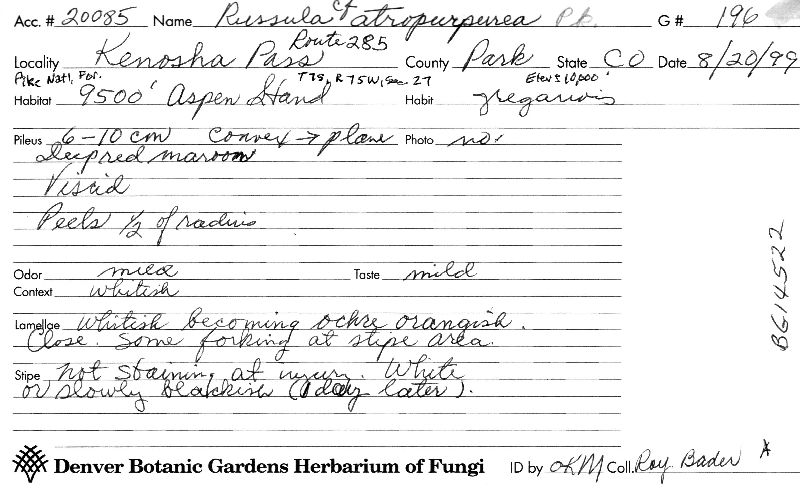 Acc. # 20085 Name Russula cf atropurpurea Pk. G # 196
Locality Kenosha Pass Route 285 County Park State CO Date 8/20/99
Pike Natl. For. T7S, R75W, Sec. 27 Elev ≤ 10,000'
Habitat 9500' Aspen Stand Habit gregarious
Pileus 6-10 cm convex → plane Photo no.
deep red maroon
Viscid
Peels 1/2 of radius
Odor mild Taste mild
Context whitish
Lamellae whitish becoming ochre orangish.
Close. Some forking at stipe area.
Stipe not staining at injury. White
or slowly blackish (1 day later).
Denver Botanic Gardens Herbarium of Fungi ID by OKM Coll. Roy Bader *
B614522